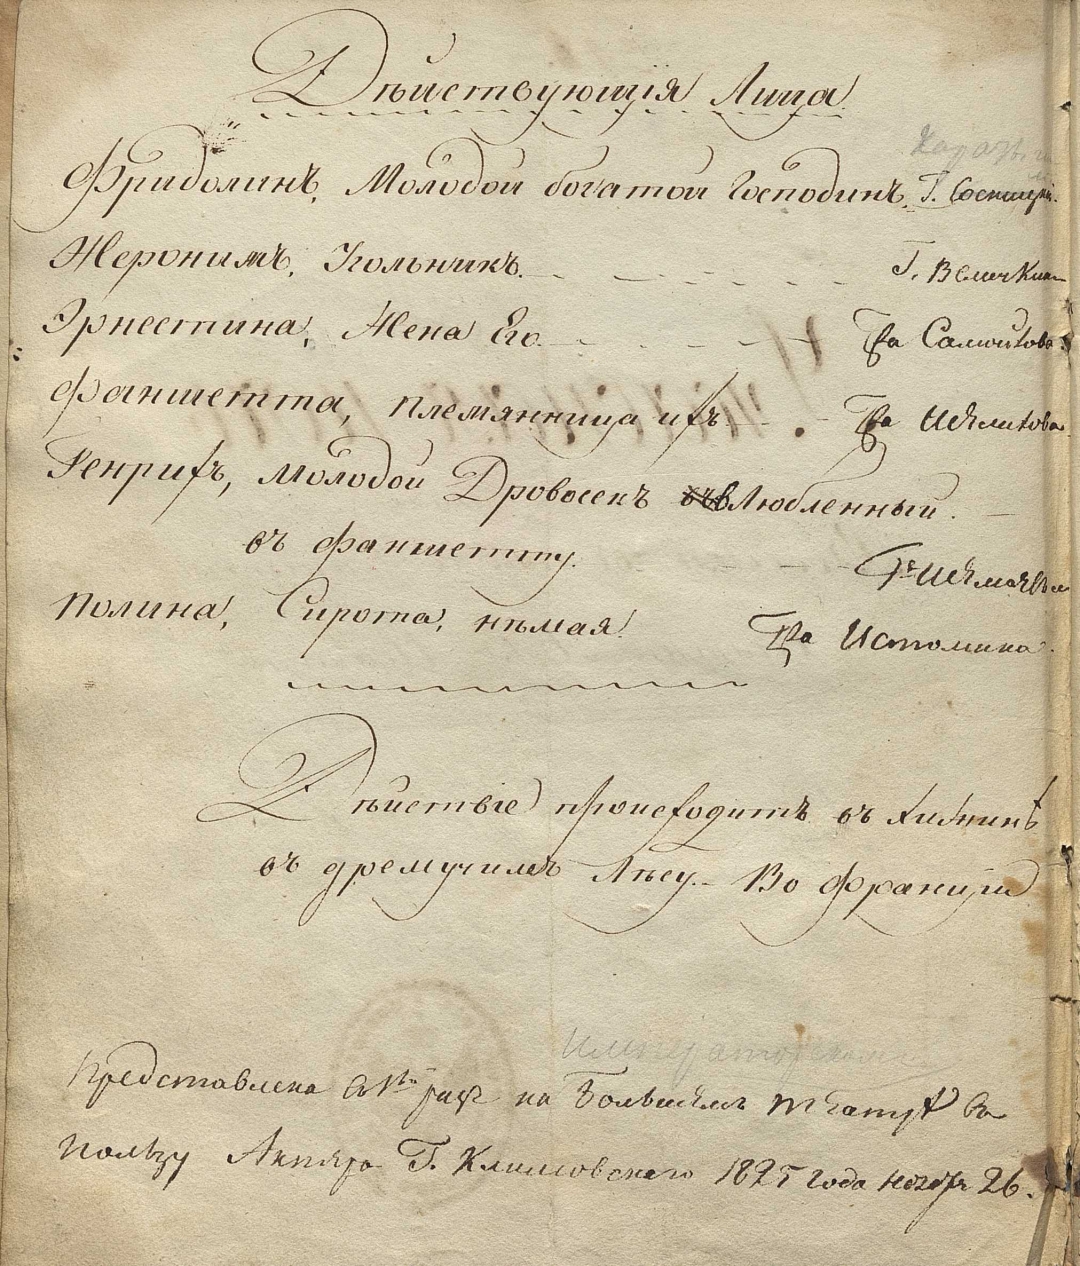 Дѣйствующія Лица
Фридолинъ, Молодой богатой Господинъ. Г. Сосницкій.
Жеронимъ, Угольникъ. Г. Величкин
Эрнестина, Жена Его. Г-жа Самойлова
Фаншетта, племянница ихъ. Г-жа
Генрихъ, Молодой Дровосекъ влюбленный
въ Фаншетту.
Полина, Сирота, нѣмая. Г-жа Истомина.
Дѣйствіе происходитъ въ Хижинѣ
въ дремучимъ Лѣсу. Во Франціи
Императорскомъ
Представлена въ 1й разъ на Большемъ театрѣ въ
пользу Актера Г. Климовскаго 1825 года ноября 26.